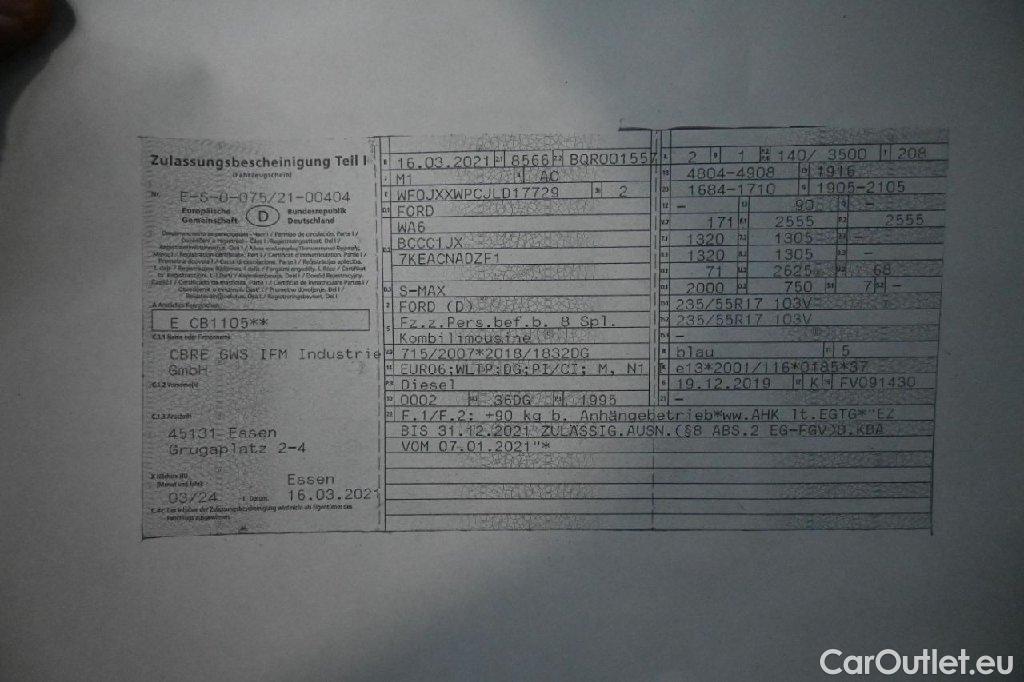 Zulassungsbescheinigung Teil I
(Fahrzeugschein)
Nr. E-S-0-075/21-00404
Europäische Gemeinschaft D Bundesrepublik Deutschland
A Amtliches Kennzeichen
E CB1105**
C.1.1 Name oder Firmenname
CBRE GWS IFM Industrie
GmbH
C.1.2 Vorname(n)
C.1.3 Anschrift
45131 Essen
Grugaplatz 2-4
Essen
03/24 16.03.2021
16.03.2021 8566 BQR001557
M1 AC
WF0JXXWPCJLD17729 2
FORD
WA6
BCCC1JX
7KEACNADZF1
S-MAX
FORD (D)
Fz.z.Pers.bef.b. 8 Spl.
Kombilimousine
715/2007*2018/1832DG
EURO6;WLTP;DG;PI/CI; M, N1
Diesel
0002 36DG 1995
2 1 140/ 3500 208
4804-4908 1916
1684-1710 1905-2105
- 90 -
171 2555 2555
1320 1305 -
1320 1305 -
71 2625 68
2000 750 7 -
235/55R17 103V
235/55R17 103V
-
blau 5
e13*2001/116*0185*37
19.12.2019 K FV091430
-
F.1/F.2: +90 kg b. Anhängebetrieb*ww.AHK lt.EGTG*"EZ
BIS 31.12.2021 ZULÄSSIG.AUSN.(§8 ABS.2 EG-FGV)D.KBA
VOM 07.01.2021"*
CarOutlet.eu